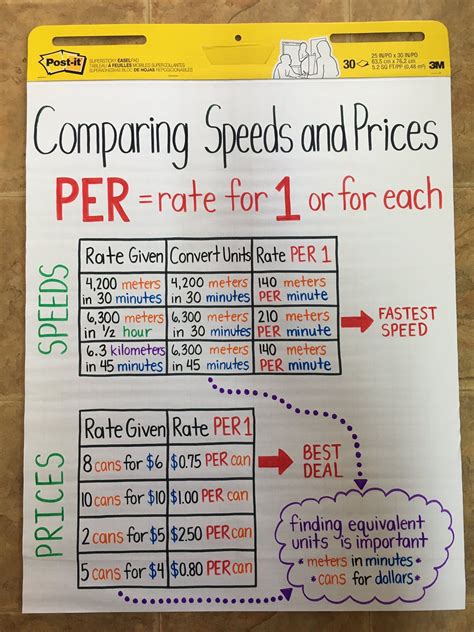 Post-it
SUPERSTICKY EASEL PAD
TABLEAU À FEUILLES MOBILES SUPERCOLLANTES
SUPERABSORBENTES DE HOJAS REPOSICIONABLES
30
25 IN/PO x 30 IN/PO
63,5 cm x 76,2 cm
5.2 SQ FT/PP (0,48 m²)
3M
Comparing Speeds and Prices
PER = rate for 1 or for each
SPEEDS
Rate Given Convert Units Rate PER 1
4,200 meters in 30 minutes 4,200 meters in 30 minutes 140 meters PER minute
6,300 meters in ½ hour 6,300 meters in 30 minutes 210 meters PER minute
FASTEST SPEED
6.3 kilometers in 45 minutes 6,300 meters in 45 minutes 140 meters PER minute
PRICES
Rate Given Rate PER 1
8 cans for $6 $0.75 PER can
BEST DEAL
10 cans for $10 $1.00 PER can
2 cans for $5 $2.50 PER can
5 cans for $4 $0.80 PER can
finding equivalent
units is important
*meters in minutes*
*cans for dollars*